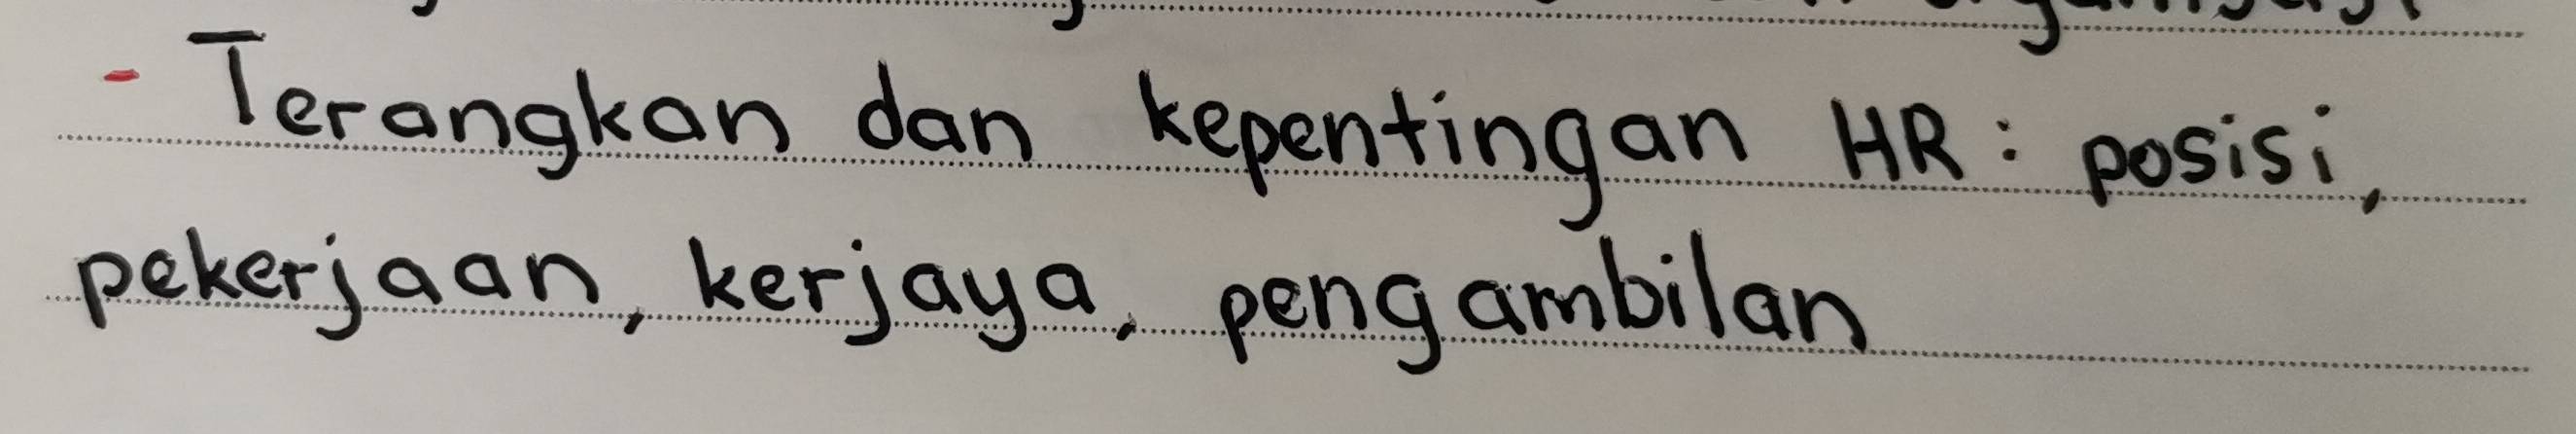 - Terangkan dan kepentingan HR : posisi,
pekerjaan, kerjaya, pengambilan